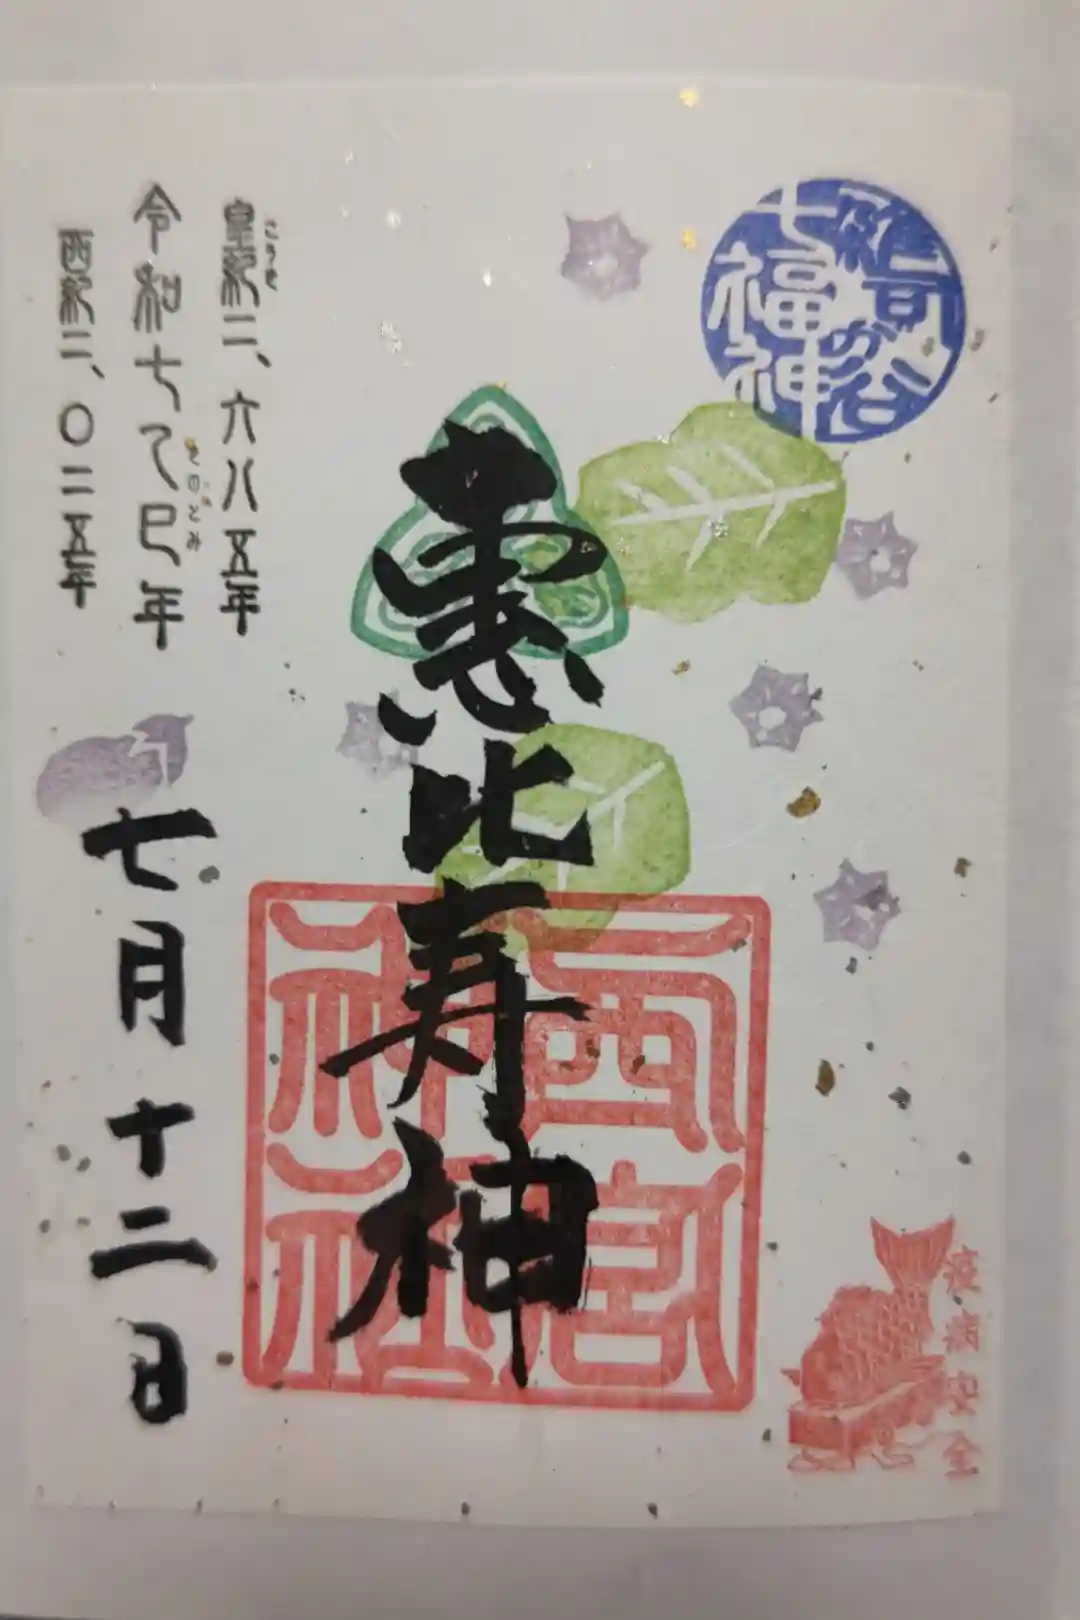 雑司が谷
七福神
恵比寿神
西宮
神社
皇紀二、六八五年
こうき
令和七乙巳年
きのとみ
西紀二、〇二五年
七月十二日